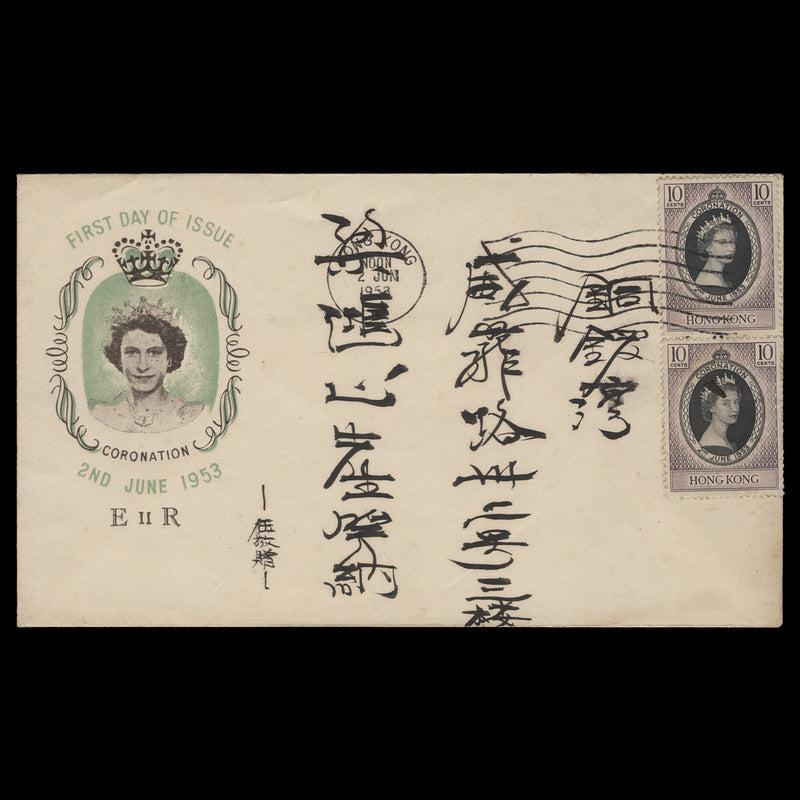 FIRST DAY OF ISSUE
CORONATION
2ND JUNE 1953
E II R
HONG KONG
NOON
2 JUN
1953
10 CENTS 10 CENTS
CORONATION
JUNE 1953
HONG KONG
10 CENTS 10 CENTS
CORONATION
JUNE 1953
HONG KONG
銅鑼灣
威菲路卅二号三楼